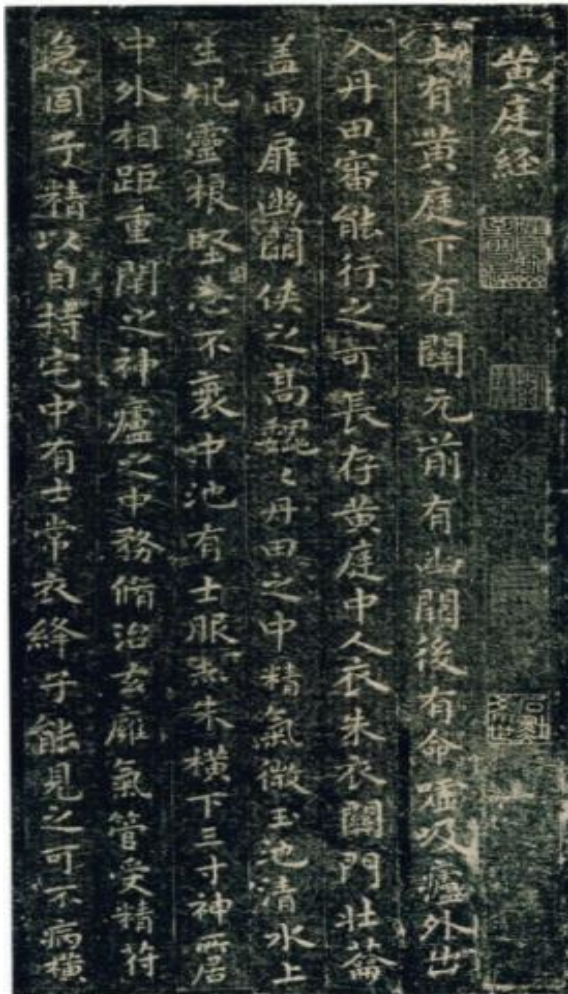 黄庭経
上有黄庭下有關元前有幽闕後有命噓吸廬外出
入丹田審能行之可長存黄庭中人衣朱衣關門壮蘥
盖兩扉幽闕侠之高巍〻丹田之中精氣微玉池清水上
生肥靈根堅志不衰中池有士服赤朱横下三寸神所居
中外相距重閉之神廬之中務脩治玄廱氣管受精苻
急固子精以自持宅中有士常衣絳子能見之可不病横